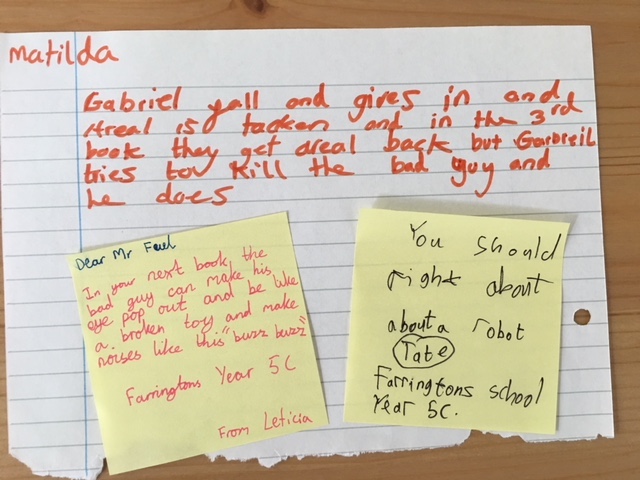 Matilda
Gabriel yall and gives in and
Areal is tacken and in the 3rd
book they get areal back but Garbreil
tries to kill the bad guy and
he does
Dear Mr Feul
In your next book, the
bad guy can make his
eye pop out and be like
a broken toy and make
noises like this "buzz buzz"
Farringtons Year 5C
From Leticia
You should
right about
about a robot
Tate
Farringtons school
Year 5C.